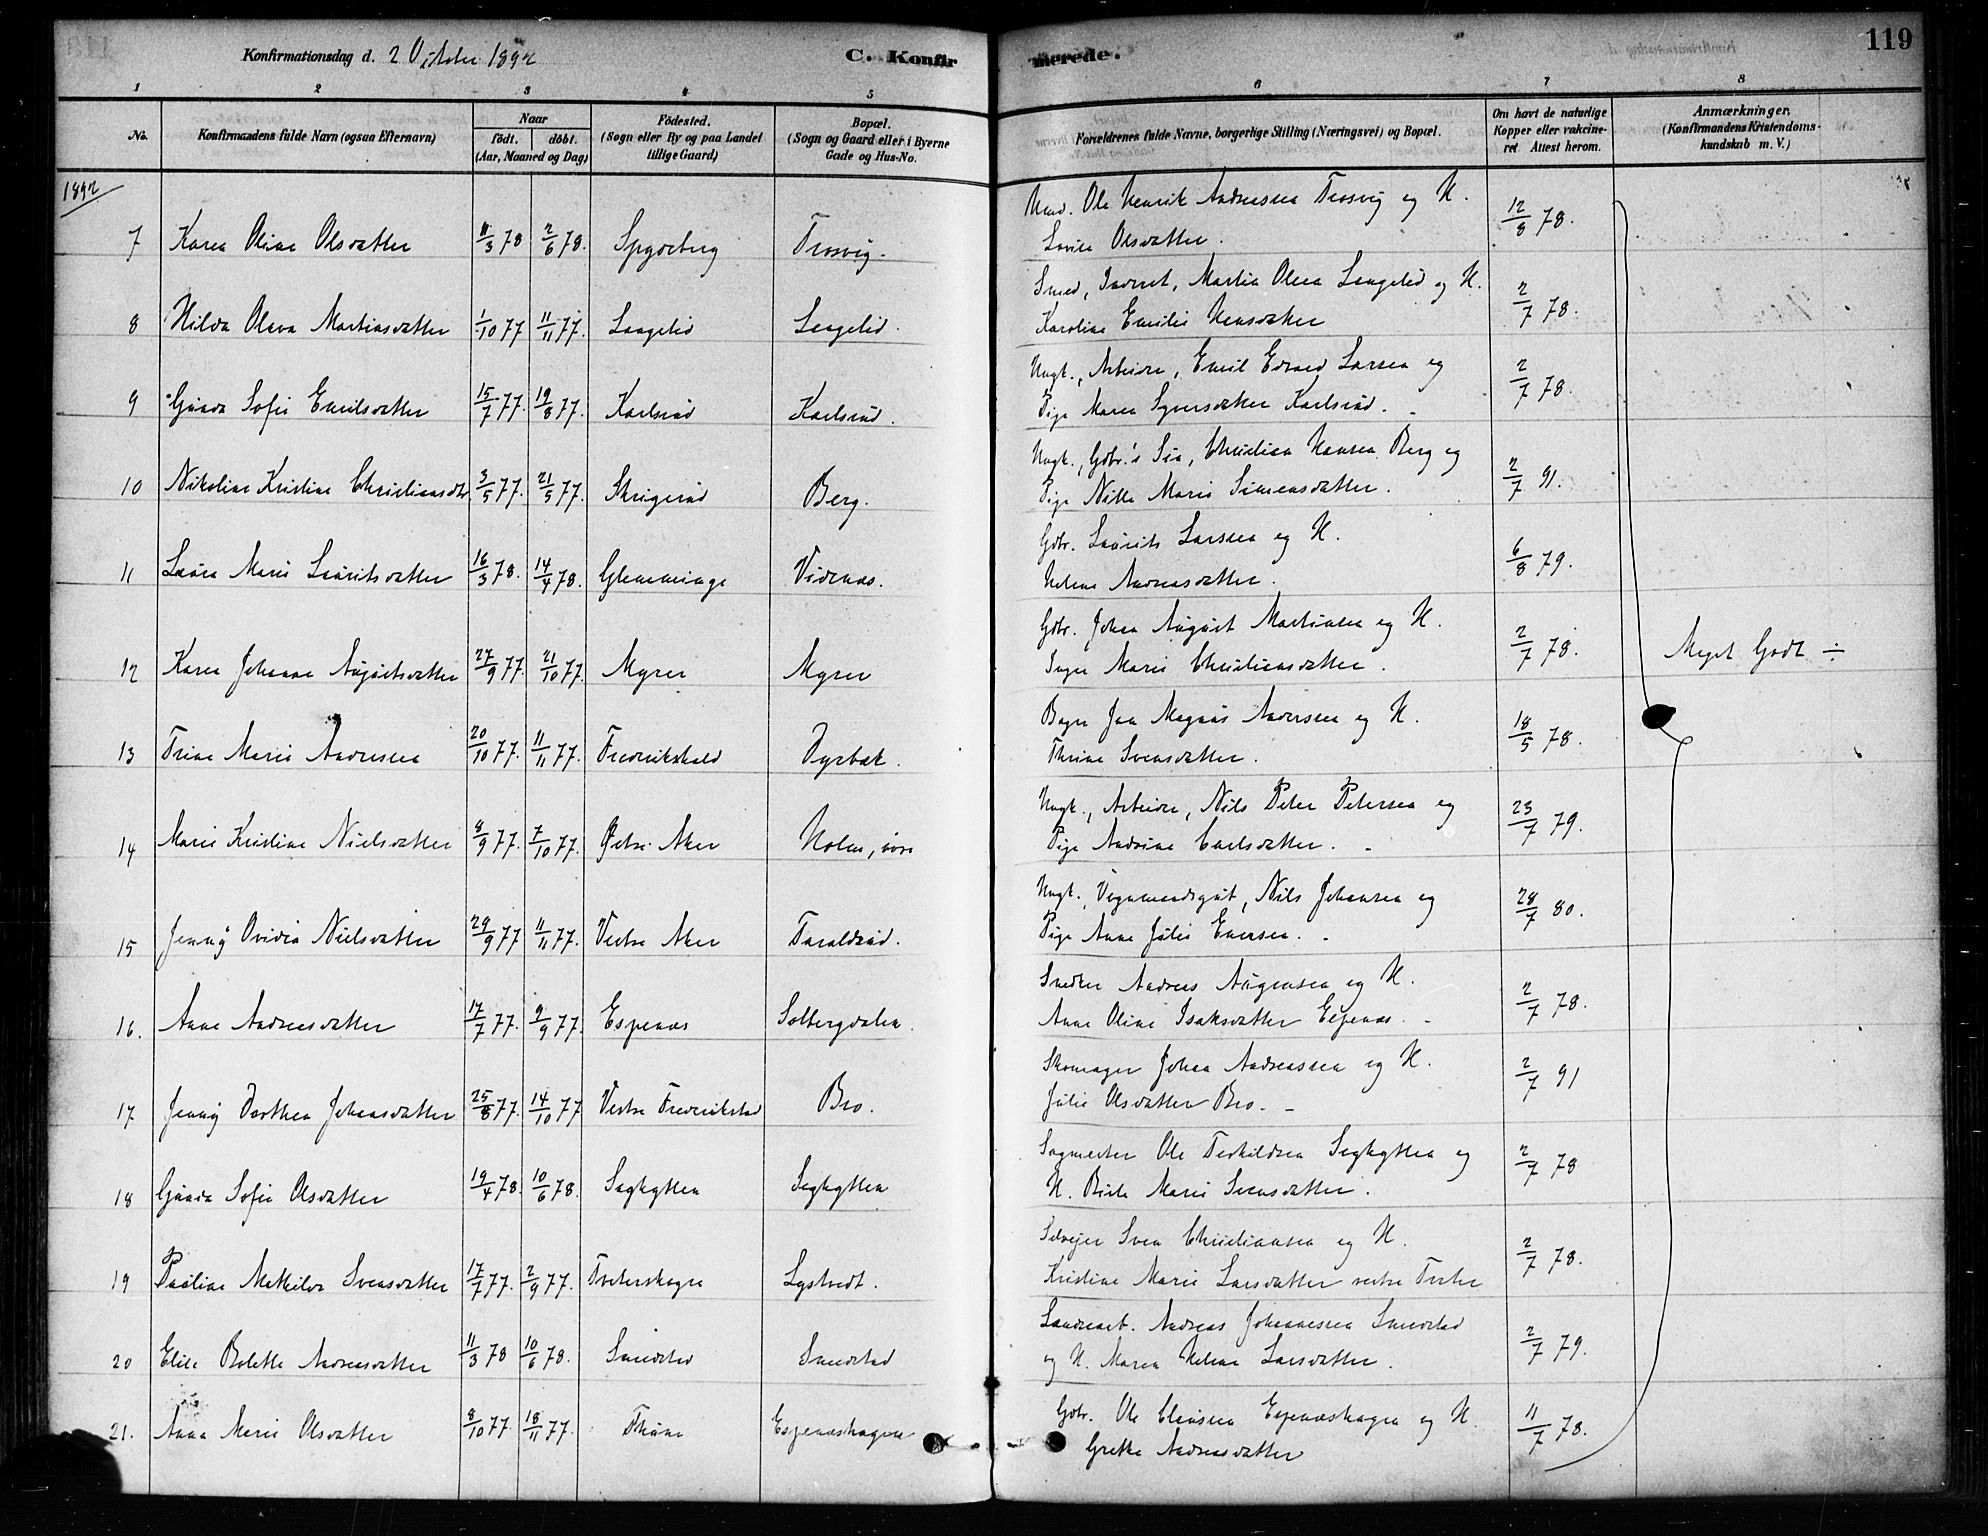 Konfirmationsdag d. 2 October 1892
C. Konfirmerede.
119
1 2 3 4 5 6 7 8
No.
Konfirmandens fulde Navn (ogsaa Efternavn)
Naar
født. døbt.
(Aar, Maaned og Dag)
Fødested.
(Sogn eller By og paa Landet
tillige Gaard)
Bopæl.
(Sogn og Gaard eller i Byerne
Gade og Hus-No.
Forældrenes fulde Navne, borgerlige Stilling (Næringsvei) og Bopæl.
Om havt de naturlige
Kopper eller vakcine-
ret Attest herom.
Anmærkninger.
(Konfirmandens Kristendoms-
kundskab m. V.)
1892
Ole Henrik Andreassen Trosvig og H.
7 Karen Oline Olsdatter 11/3 78 2/6 78. Spydeberg Trosvig. Lovise Olsdatter. 12/8 78.
Smed, Inderst, Martin Olsen Langelid og H.
8 Hilda Olava Martinsdatter 1/10 77 11/11 77. Langelid Langelid. Karoline Emilie Hansdatter 2/7 78.
Ungk., Arbeider, Emil Edvard Larsen og
9 Gunda Sofie Emilsdatter 15/7 77. 19/8 77. Karlsrud Karlsrud. Pige Maren Syversdatter Karlsrud. 2/7 78.
Ungk., Gdbr.'s Søn, Christian Hansen Berg og
10 Nikoline Kristine Christiansdtr. 3/5 77. 21/5 77. Skrigerud Berg. Pige Nilla Marie Simensdatter. 2/7 91.
Gdbr. Laurits Larsen og H.
11 Laura Marie Lauritsdatter 16/3 78. 14/4 78. Glemminge Vidnes. Helene Andreasdatter. 6/8 79.
Gdbr. Johan August Martinsen og H.
12 Karen Johanne Augustsdatter 27/9 77. 21/10 77. Myrer Myrer Inger Marie Christiansdatter. 2/7 78. Meget Godt ÷
Bager Jan Magnus Andersen og H.
13 Trine Marie Andersen 20/10 77. 11/11 77. Fredrikshald Dyrbæk. Thrine Svensdatter. 18/5 78.
Ungk., Arbeider, Nils Peter Petersen og
14 Marie Kristine Nielsdatter 8/9 77. 7/10 77. Østre Aker Holm, øvre Pige Andrine Carlsdatter. 23/7 79.
Ungk., Vognmandsgut, Nils Johansen og
15 Jenny Ovidia Nielsdatter 29/9 77 11/11 77. Vestre Aker Taraldrud. Pige Anne Julie Eversen. 28/7 80.
Snedker Andreas Augensen og H.
16. Anne Andreasdatter 17/7 77. 9/9 77. Espenæs Solbergdalen. Anne Oline Isaksdatter Espenæs. 2/7 78.
Skomager Johan Andreassen og H.
17 Jenny Dorthea Johansdatter 25/8 77. 14/10 77 Vestre Fredrikstad Bro. Julie Olsdatter Bro. 2/7 91
Sagmester Ole Terkildsen Saghytten og
18 Gunda Sofie Olsdatter 19/4 78. 10/6 78. Saghytten Saghytten H. Berte Marie Svensdatter. 2/7 78
Selvejer Sven Christiansen og H.
19 Pauline Mathilde Svensdatter 17/7 77. 2/9 77. Tveterhagen Lystvedt. Kristine Marie Larsdatter vestre Tveter 2/7 78.
Landarb. Andreas Johannessen Smedstad
20 Elise Bolette Andreasdatter 11/3 78 10/6 78. Smedstad Smedstad og H. Maren Helene Larsdatter. 2/7 79.
Gdbr. Ole Clausen Espenæshagen og H.
21. Anna Marie Olsdatter 8/10 77. 18/11 77. Thune Espenæshagen Grethe Andreasdatter 11/7 78.